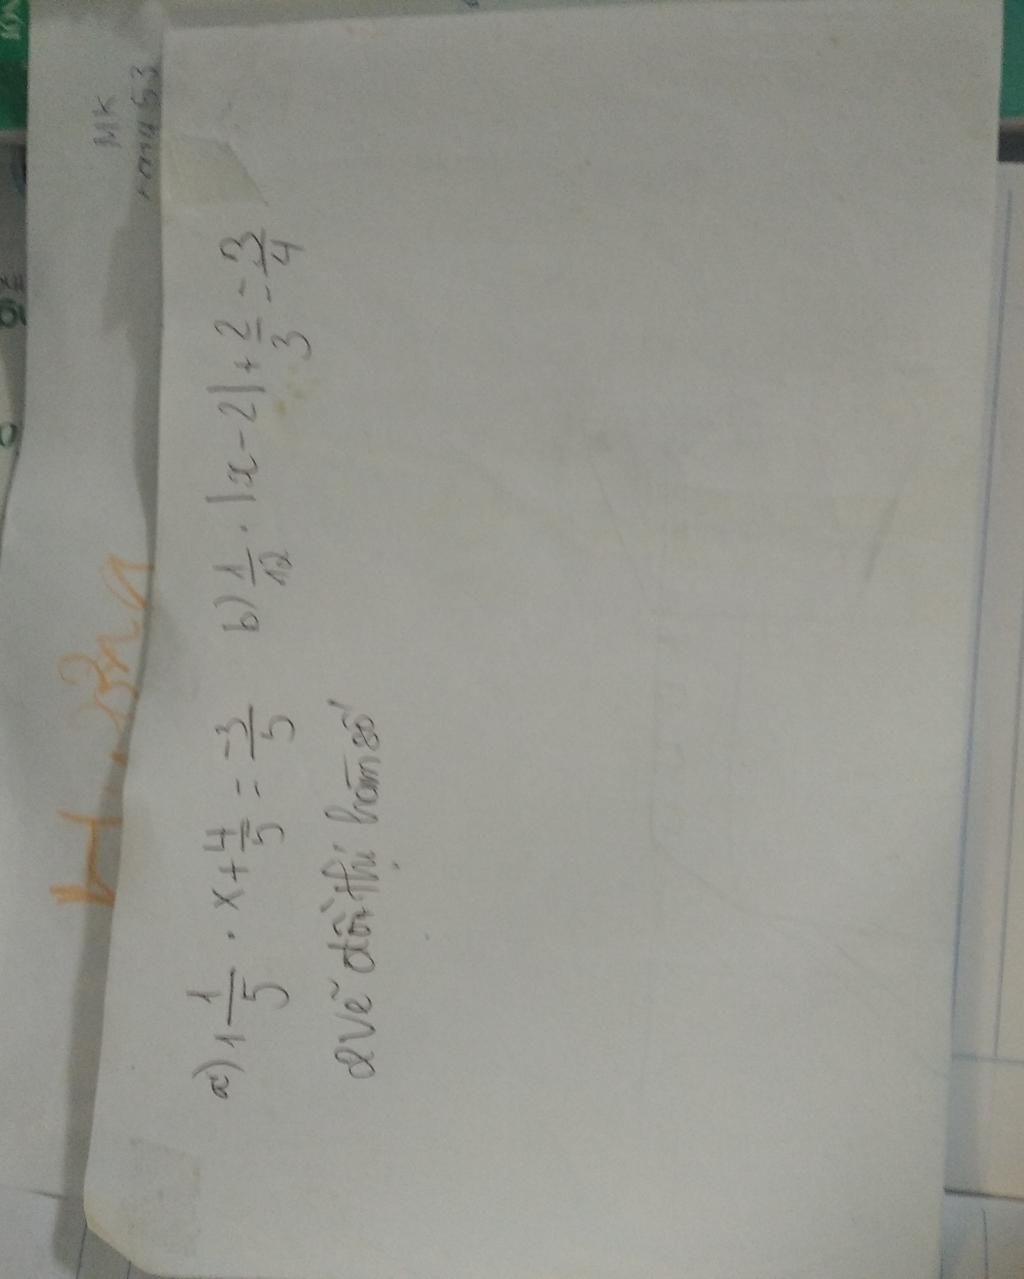 MK
a) 1 1/5 . x + 4/5 = -3/5 b) 1/12 . |x - 2| + 2/3 = 3/4
2 Vẽ đồ thị hàm số